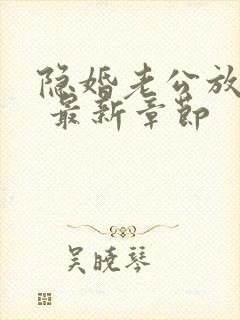 隐婚老公放
最新章节
吴晓琴